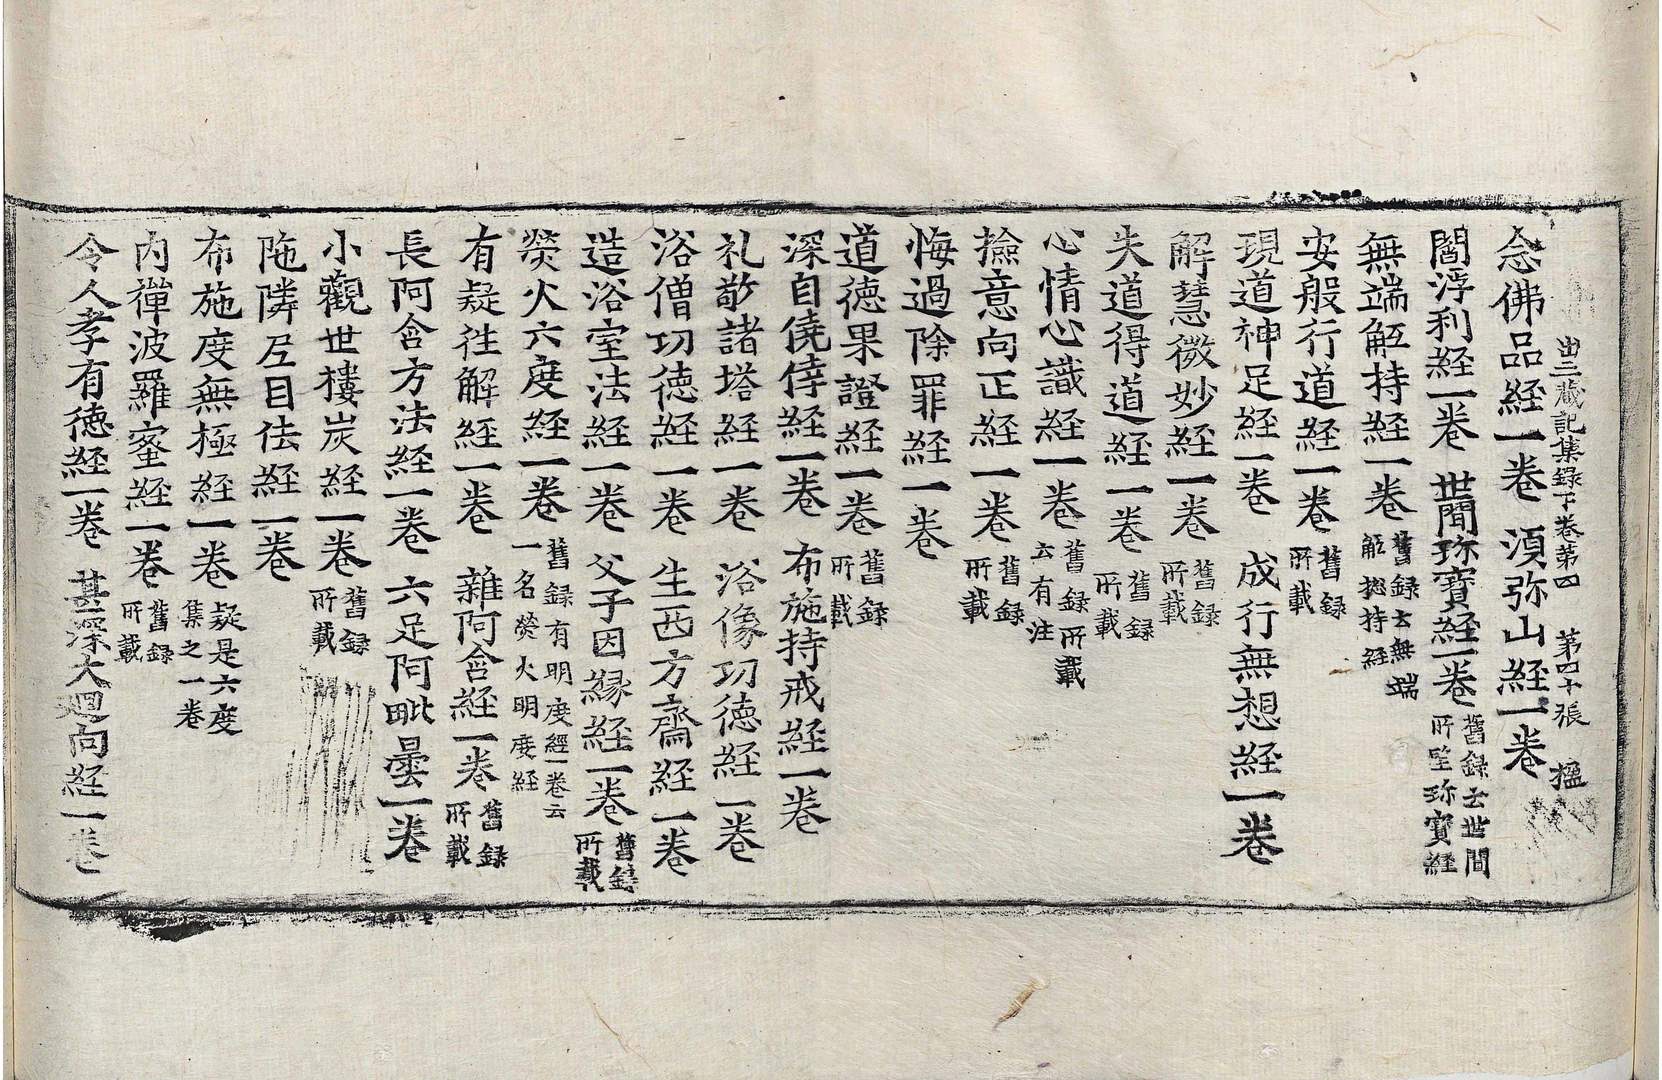 出三蔵記集録下巻第四　第四十張　楹
念佛品経一巻　湏弥山経一巻
閻浮利経一巻　世間珎寳経一巻 舊録云世間所望珎寳経
無端㧾持経一巻 舊録云無端㧾持経
安般行道経一巻 舊録所載
現道神足経一巻　成行無想経一巻
解慧微妙経一巻 舊録所載
失道得道経一巻 舊録所載
心情心識経一巻 舊録所載云有注
撿意向正経一巻 舊録所載
悔過除罪経一巻
道徳果證経一巻 舊録所載
深自僥倖経一巻　布施持戒経一巻
礼敬諸塔経一巻　浴像功徳経一巻
浴僧功徳経一巻　生西方齋経一巻
造浴室法経一巻　父子因縁経一巻 舊録所載
熒火六度経一巻 舊録有明度經一巻云一名熒火明度経
有疑徃解経一巻　雜阿含経一巻 舊録所載
長阿含方法経一巻　六足阿毗曇一巻
小觀世樓炭経一巻 舊録所載
陁隣𡰱目佉経一巻
布施度無極経一巻 疑是六度集之一巻
内禪波羅蜜経一巻 舊録所載
令人孝有徳経一巻　甚深大迴向経一巻